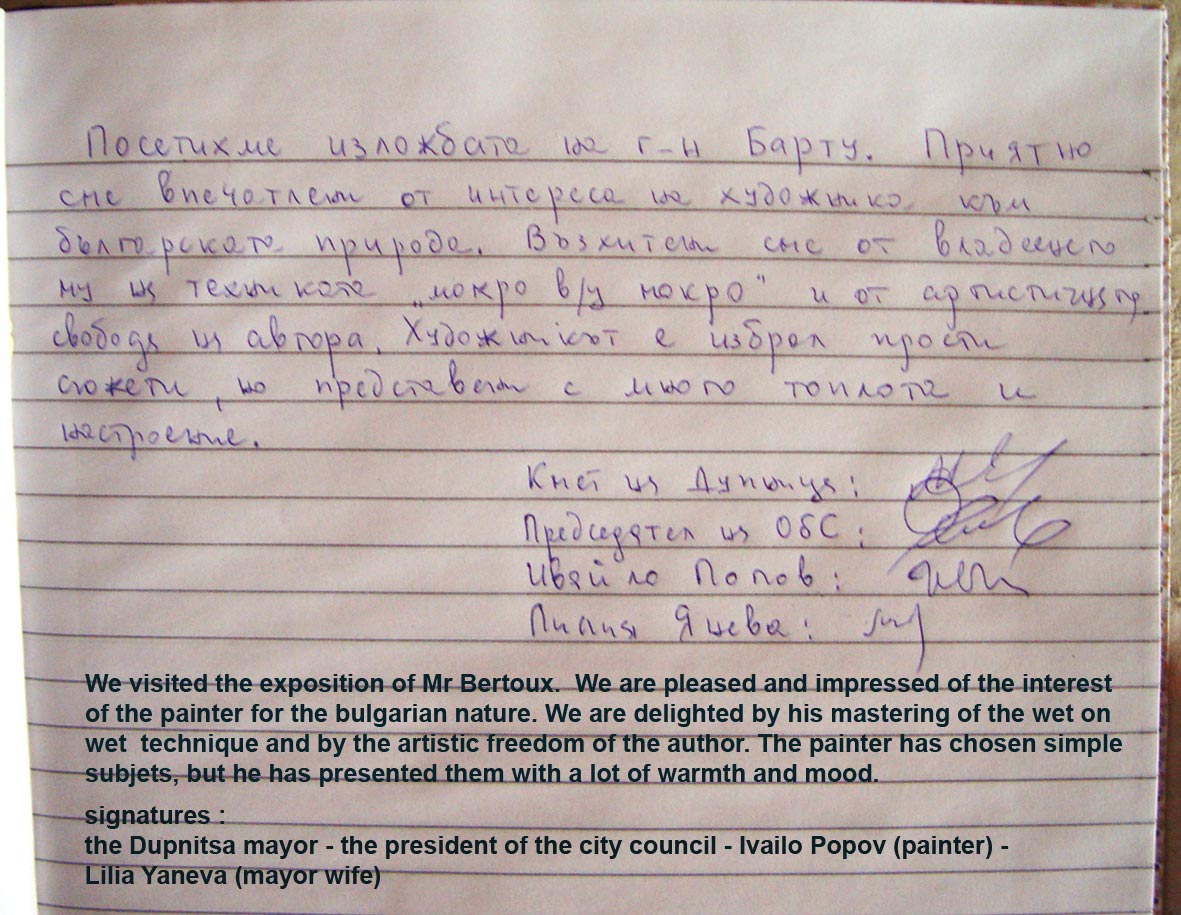 Посетихме изложбата на г-н Барту. Приятно
сме впечатлени от интереса на художника към
българската природа. Възхитени сме от владеенето
му на техниката „мокро в/у мокро" и от артистичната
свобода на автора. Художникът е избрал прости
сюжети, но представени с много топлота и
настроение.
Кмет на Дупница:
Председател на ОбС:
Ивайло Попов:
Лилия Янева:
We visited the exposition of Mr Bertoux. We are pleased and impressed of the interest
of the painter for the bulgarian nature. We are delighted by his mastering of the wet on
wet technique and by the artistic freedom of the author. The painter has chosen simple
subjets, but he has presented them with a lot of warmth and mood.
signatures :
the Dupnitsa mayor - the president of the city council - Ivailo Popov (painter) -
Lilia Yaneva (mayor wife)